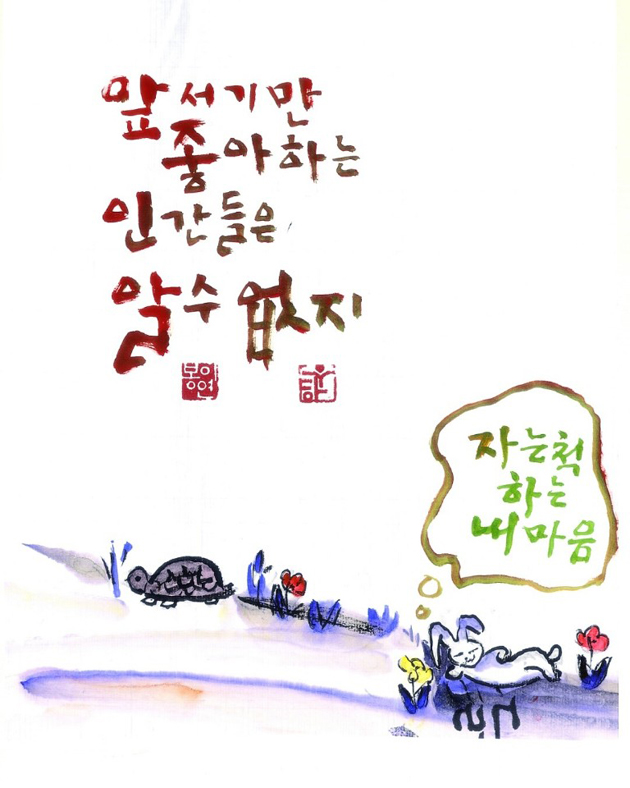 앞서기만
좋아하는
인간들은
알수 없지
자는척
하는
내마음